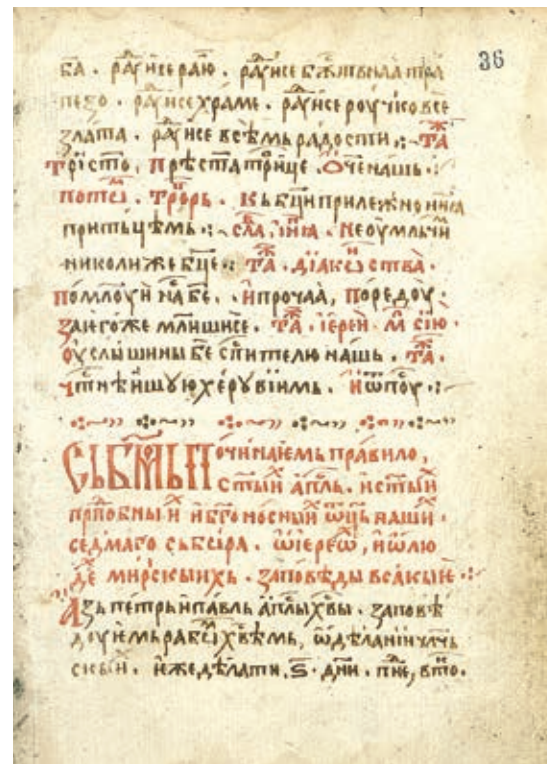 36
б҃а . раⷣуисе раю . раⷣуисе бжⷭ҇твнаа тра
пезо . раⷣуисе храме . раⷣуисе роучко все
злата . раⷣуисе всѣмь радости ⁘ таⷤ
трⷭ҇исто , прѣст҃аа трⷪ҇ице . ѡч҃е нашь ⁘
потоⷨ . троⷫ҇рь . кь бц҃и прилежно нн҃ꙗ
притьцѣмь ⁘ слаⷡ , инⷩ҇ꙗ . не оумльчиⷨ
николиже бц҃е ⁘ таⷤ . дїакѡⷩ ства .
помлⷭ҇оуи наⷭ б҃е . и прочаа , поредоу :
за ѥгоже мл҃ишисе . таⷤ . їереи . мⷧ҇ сїю .
оуслыши ны б҃е сп҃ителю нашь . таⷤ .
чⷭ҇тнѣишую херувїимь . и ѿпоуⷭ ⁘
Сь бг҃ѡмь починаѥмь правило ,
ст҃ыиⷯ апⷭ҇ль . и ст҃ыиⷯ
прпⷣобныиⷯ и бг҃оносныиⷯ ѡц҃ь нашиⷯ .
седмаго сьбѡра . ѡ їереѡⷯ , и ѡ лю
деⷯ мирскыихь . заповѣды всакыѥ ⁘
Азь петрь и павль апⷭ҇лы хв҃ы . заповѣ
доуѥмь рабѡⷨ хв҃ѣмь , ѡ дѣланїи чл҃чь
скыиⷯ . иже дѣлати , ѕ҃ . дн҃и . пнⷣе , втⷪ҇о .